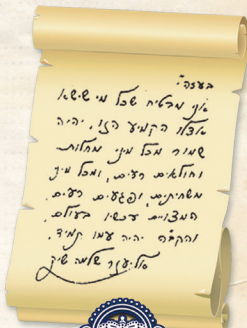 בעזה"י
אני מבטיח שכל מי שישא
אצלו הקמיע הזו, יהיה
שמור מכל מיני מחלות
וחולאים רעים, ומכל מיני
משחיתים, ופגעים רעים,
המצויים עכשיו בעולם
והקב"ה יהיה עמו תמיד.
אליעזר שלמה שיק